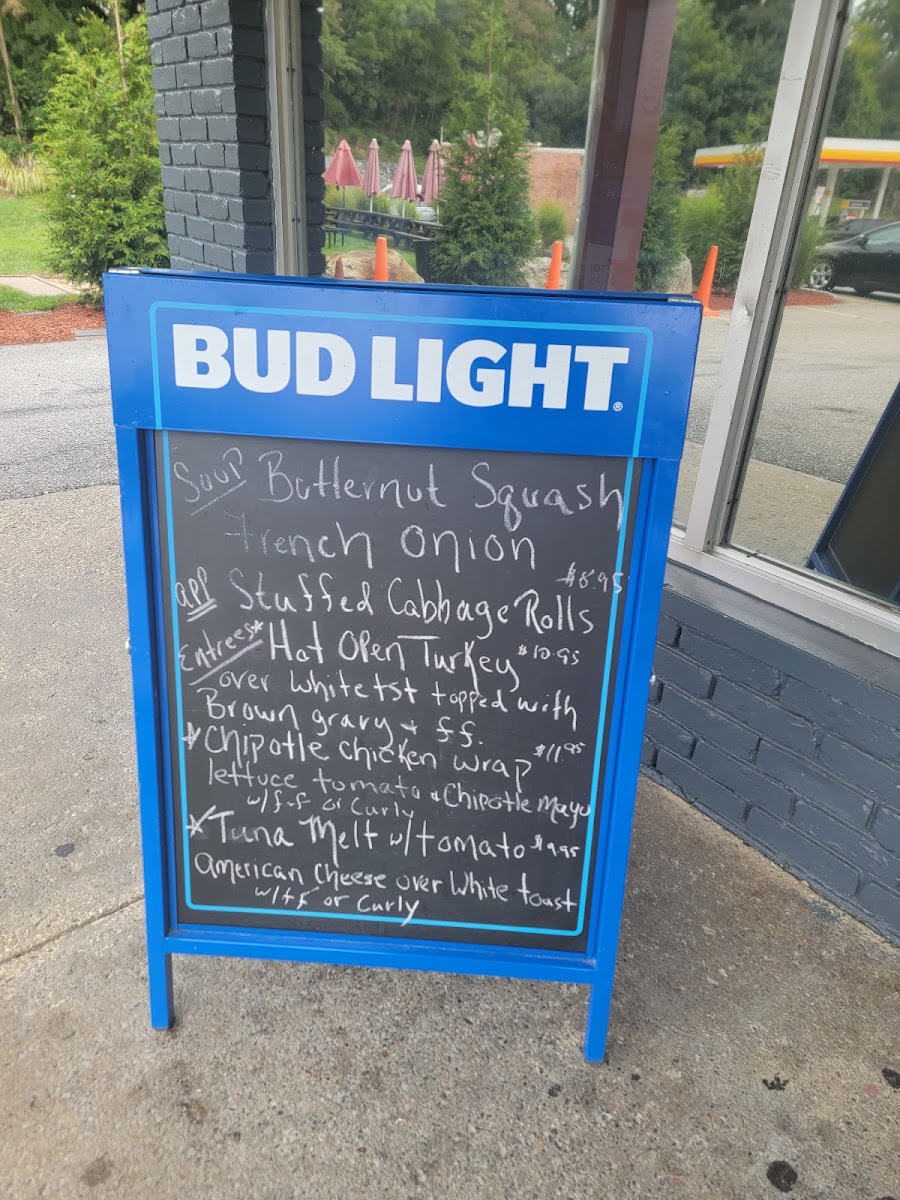 BUD LIGHT®
Soup Butternut Squash
French Onion
app Stuffed Cabbage Rolls $8.95
Entrees * Hot Open Turkey $10.95
over white tst topped with
Brown gravy + ff.
* Chipotle chicken wrap $11.95
lettuce tomato & Chipotle Mayo
w/f.f or Curly
* Tuna Melt w/tomato $9.95
American Cheese over White toast
w/ff or Curly